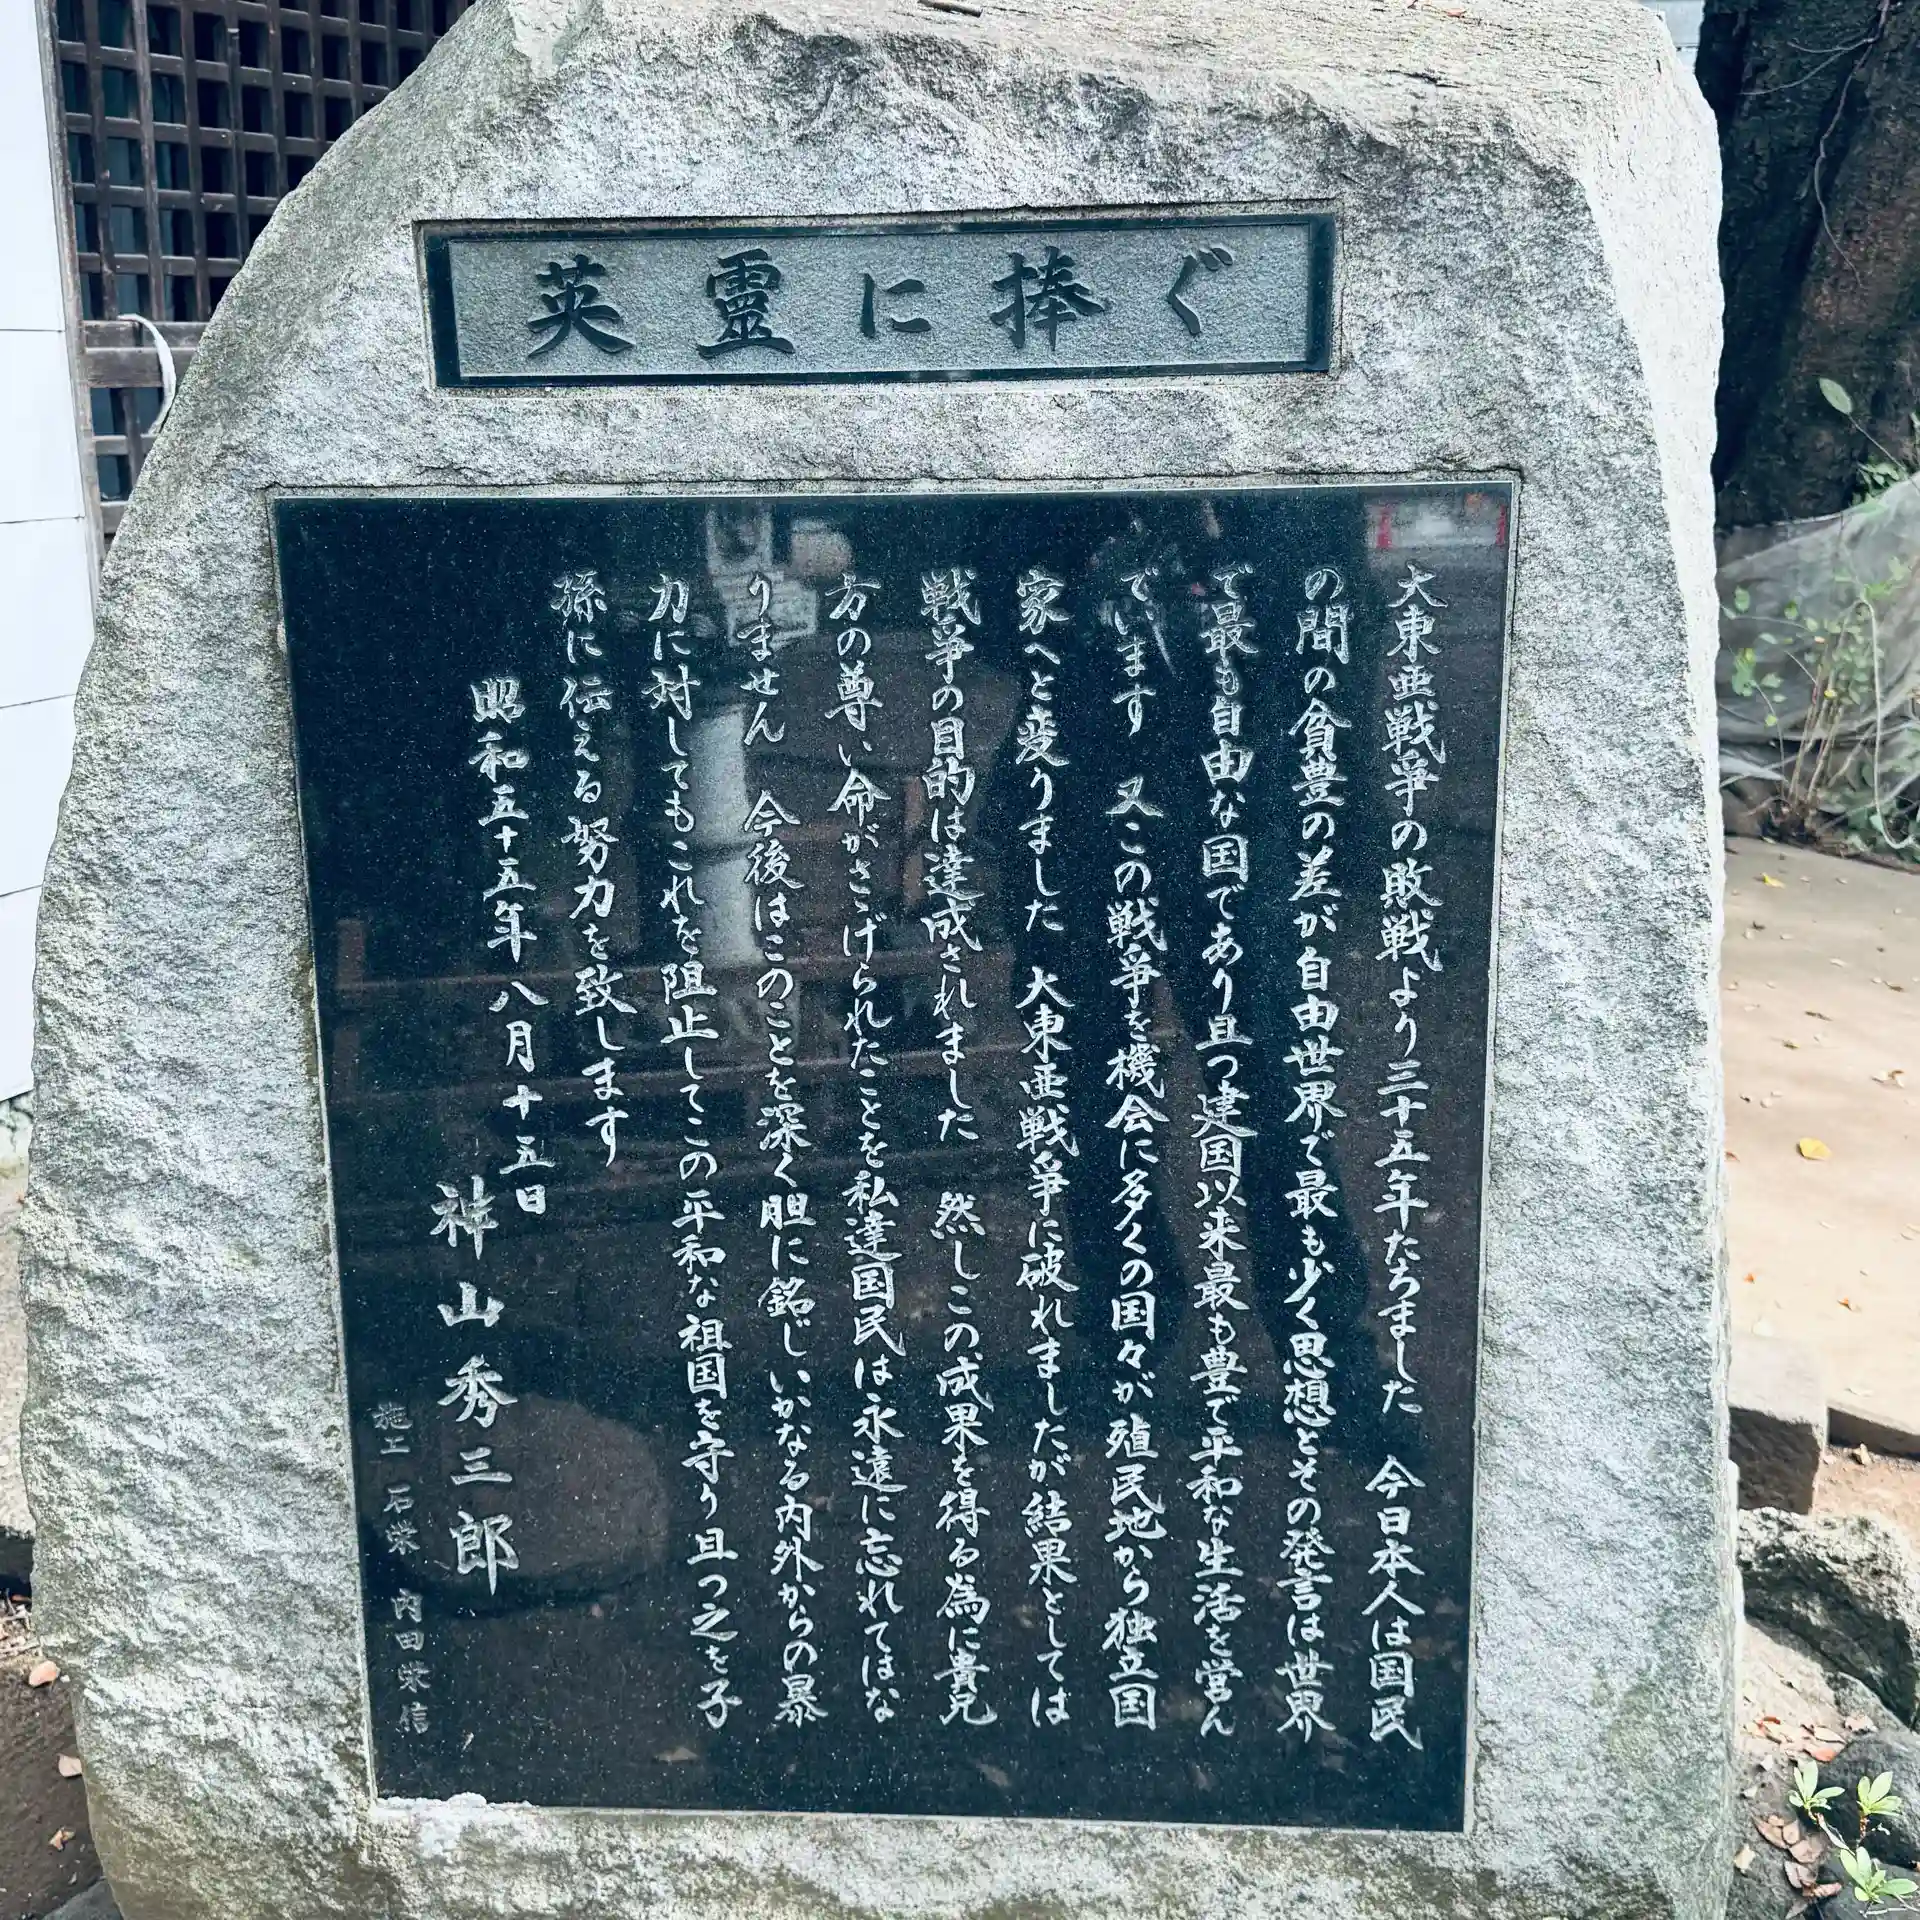 英霊に捧ぐ
大東亜戦争の敗戦より三十五年たちました　今日本人は国民
の間の貧豊の差が自由世界で最も少く思想とその発言は世界
で最も自由な国であり且つ建国以来最も豊で平和な生活を営ん
でいます　又この戦争を機会に多くの国々が殖民地から独立国
家へと変りました　大東亜戦争に破れましたが結果としては
戦争の目的は達成されました　然しこの成果を得る為に貴兄
方の尊い命がさゝげられたことを私達国民は永遠に忘れてはな
りません　今後はこのことを深く胆に銘じいかなる内外からの暴
力に対してもこれを阻止してこの平和な祖国を守り且つ之を子
孫に伝える努力を致します
昭和五十五年八月十五日
神山秀三郎
施工　石栄　内田栄信